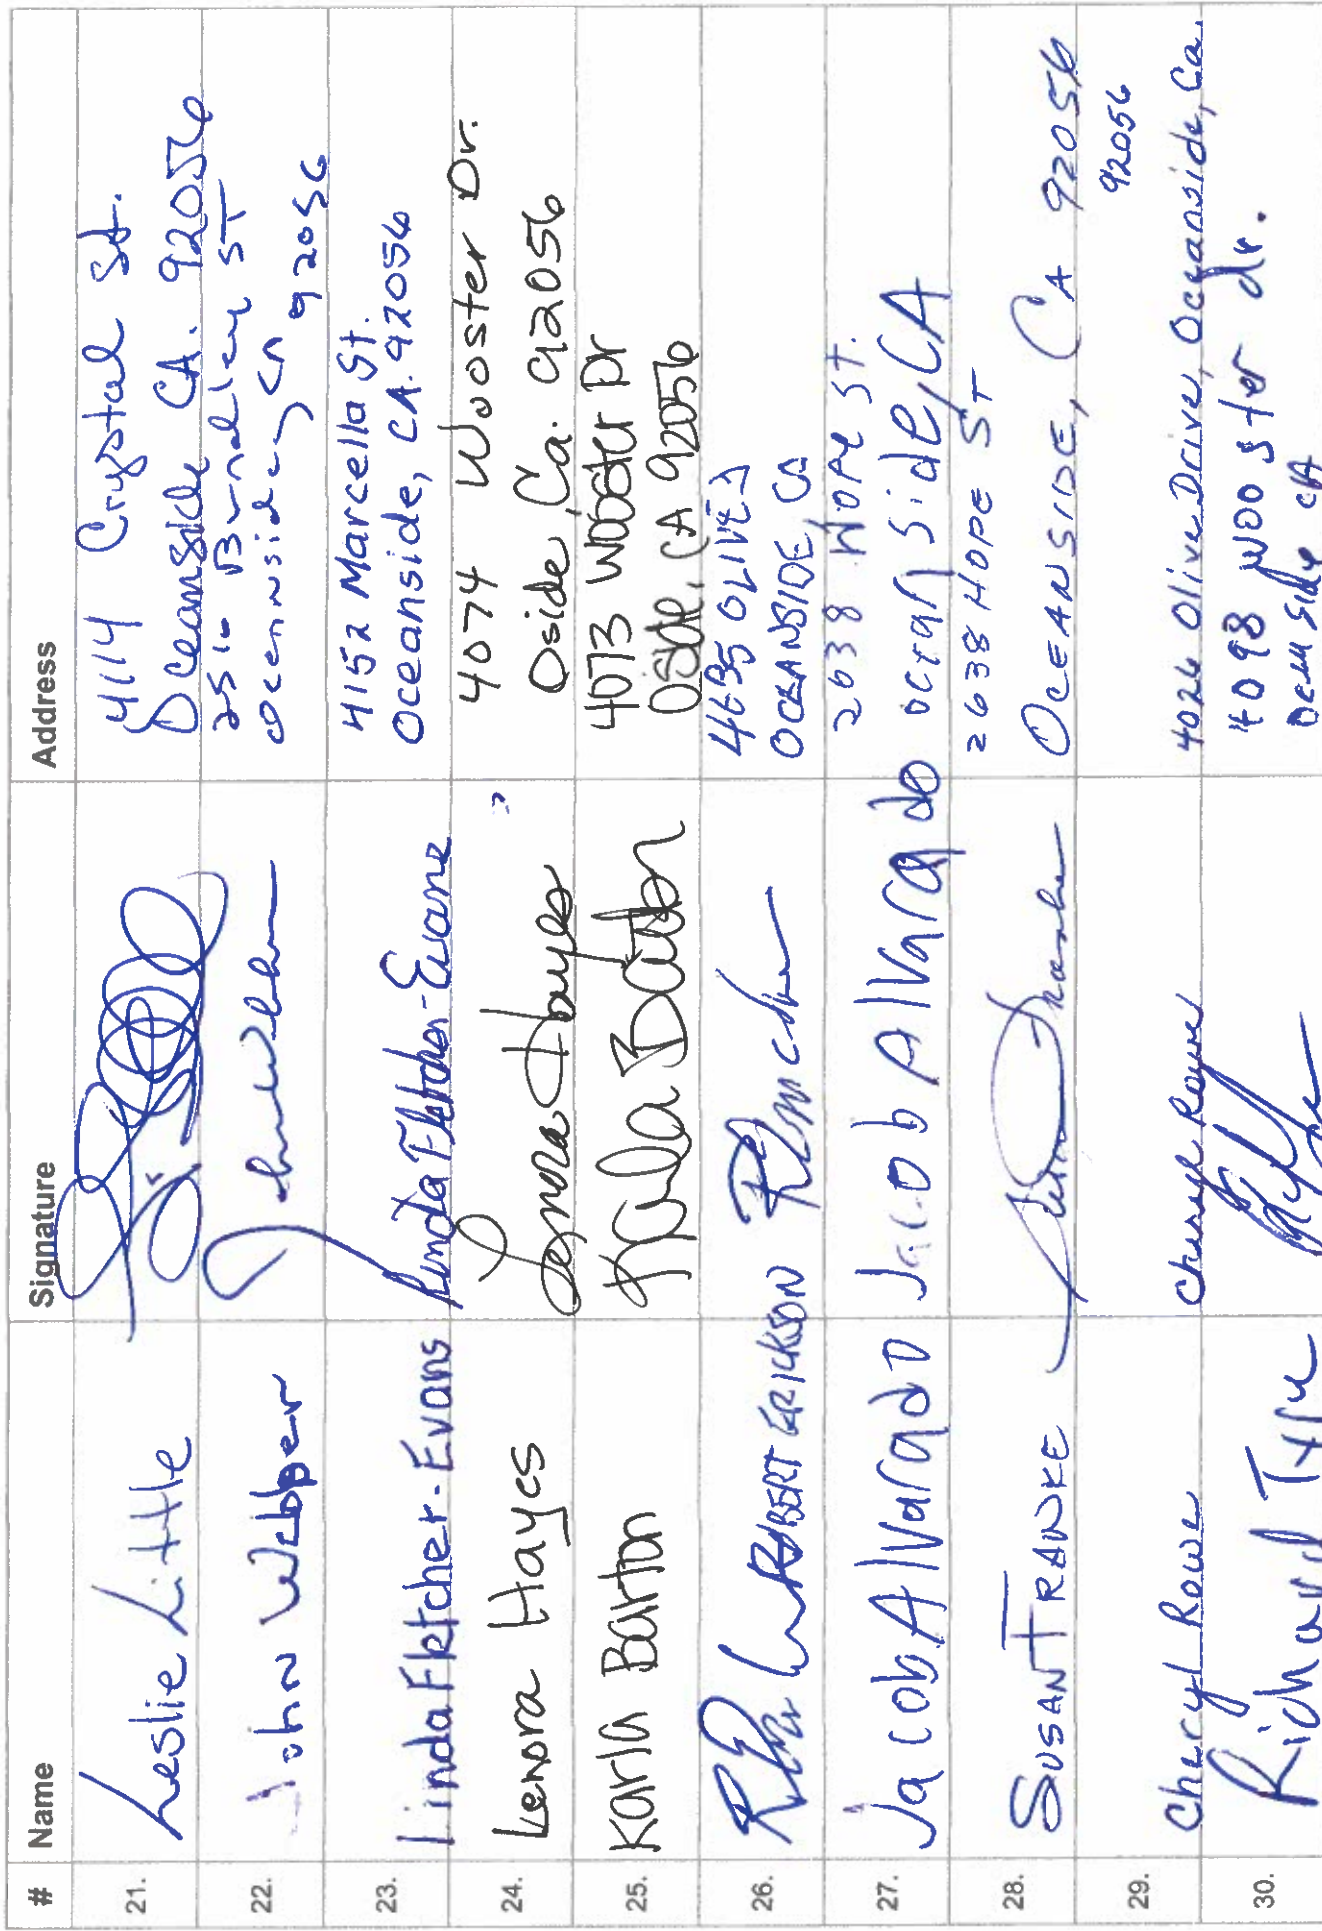 # Name Signature Address
21. Leslie Little 4114 Crystal St.
Oceanside CA. 92056
22. John Webber ST
Oceanside, CA 92056
23. Linda Fletcher-Evans Linda Fletcher-Evans 4152 Marcella St.
Oceanside, CA. 92056
24. Lenora Hayes Lenora Hayes 4074 Wooster Dr.
Oside, Ca. 92056
25. Karla Barton Karla Barton 4073 Wooster Dr
Oside, CA 92056
26. ROBERT ERICKSON OLIVE
OCEANSIDE CA
27. Jacob Alvarado Jacob Alvarado 2638 HOPE ST.
oceanside, CA
28. SUSAN FRANKE 2638 HOPE ST
OCEANSIDE, CA 92056
92056
29. Cheryl Rowe 4026 Olive Drive, Oceanside, Ca.
30. Richard 4098 wooster dr.